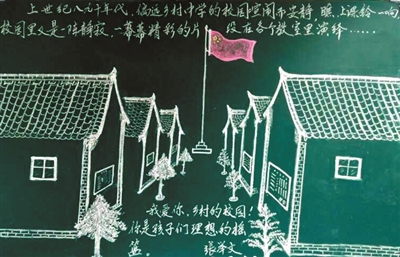 上世纪八九十年代，偏远乡村中学的校园空阔而安静，瞧，上课铃一响，
校园里又是一阵静寂，一幕幕精彩的片段在各个教室里演绎……
我爱你，乡村的校园！
你是孩子们理想的摇
篮。 张泽文